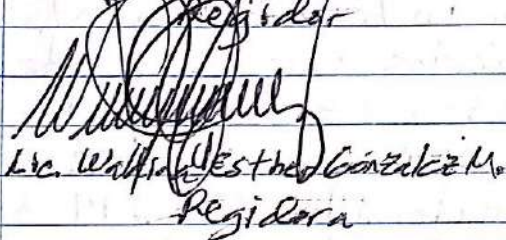 Regidor
Lic. Esther González M.
Regidora